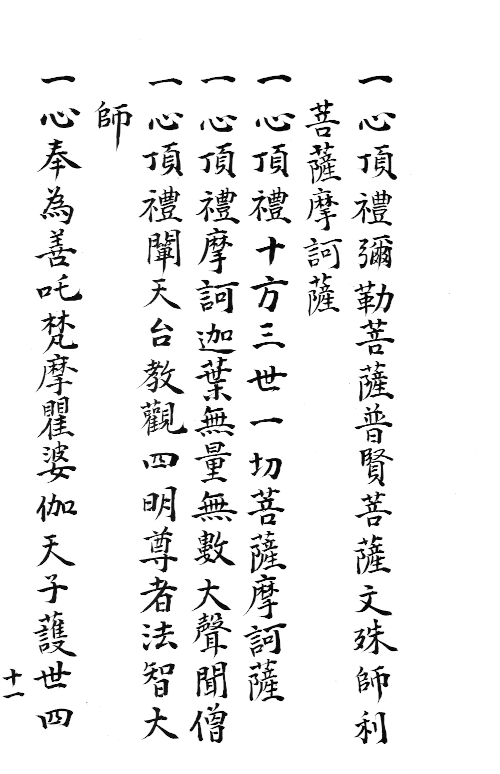 一心頂禮彌勒菩薩普賢菩薩文殊師利
菩薩摩訶薩
一心頂禮十方三世一切菩薩摩訶薩
一心頂禮摩訶迦葉無量無數大聲聞僧
一心頂禮闡天台教觀四明尊者法智大
師
一心奉為善吒梵摩瞿婆伽天子護世四
十一